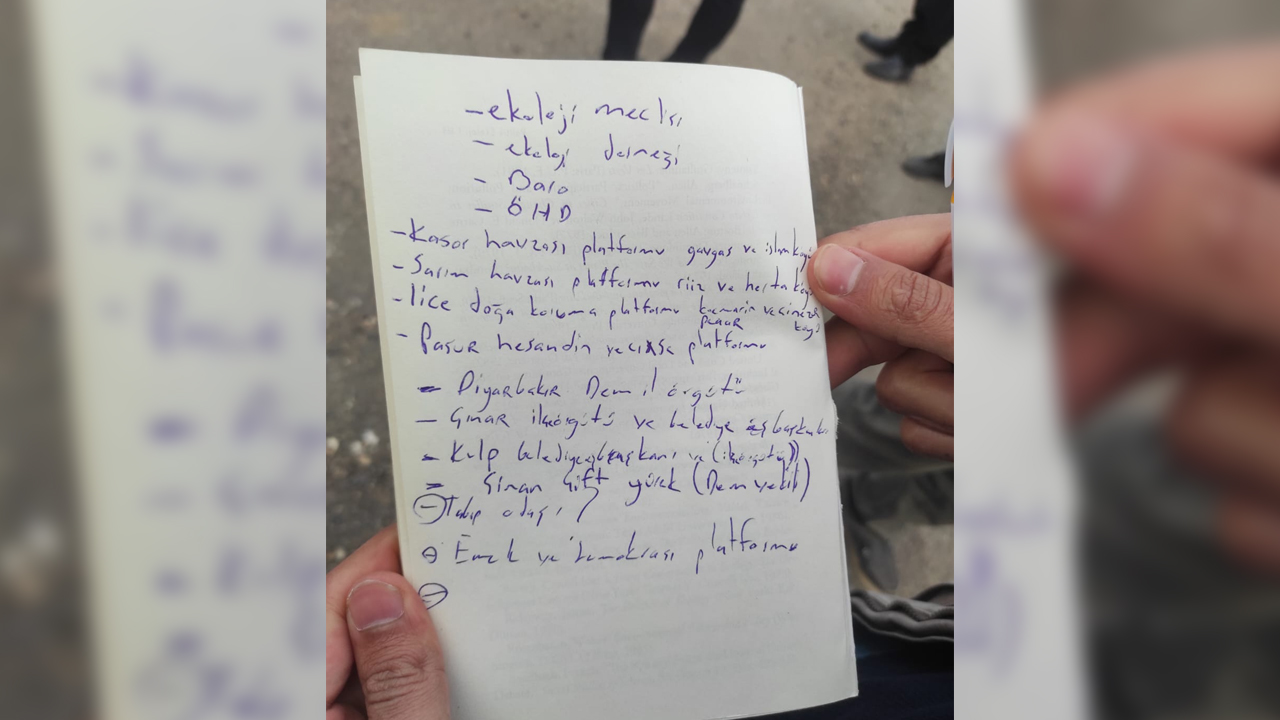 - ekoloji meclisi
- ekoloji derneği
- Baro
- ÖHD
- Kasor havzası platformu gavgas ve islamköy
- Sarım havzası platformu riiz ve herta köy
- lice doğa koruma platformu
- Pasur hesandin platformu
- Diyarbakır Dem il örgütü
- Çınar ilçe örgütü ve belediye eşbaşkanları
- Kulp belediye eşbaşkanı ve (ilçe örgütü)
- Sinan Çiftyürek (Dem vekili)
- Tabip odası
- Emek ve demokrasi platformu